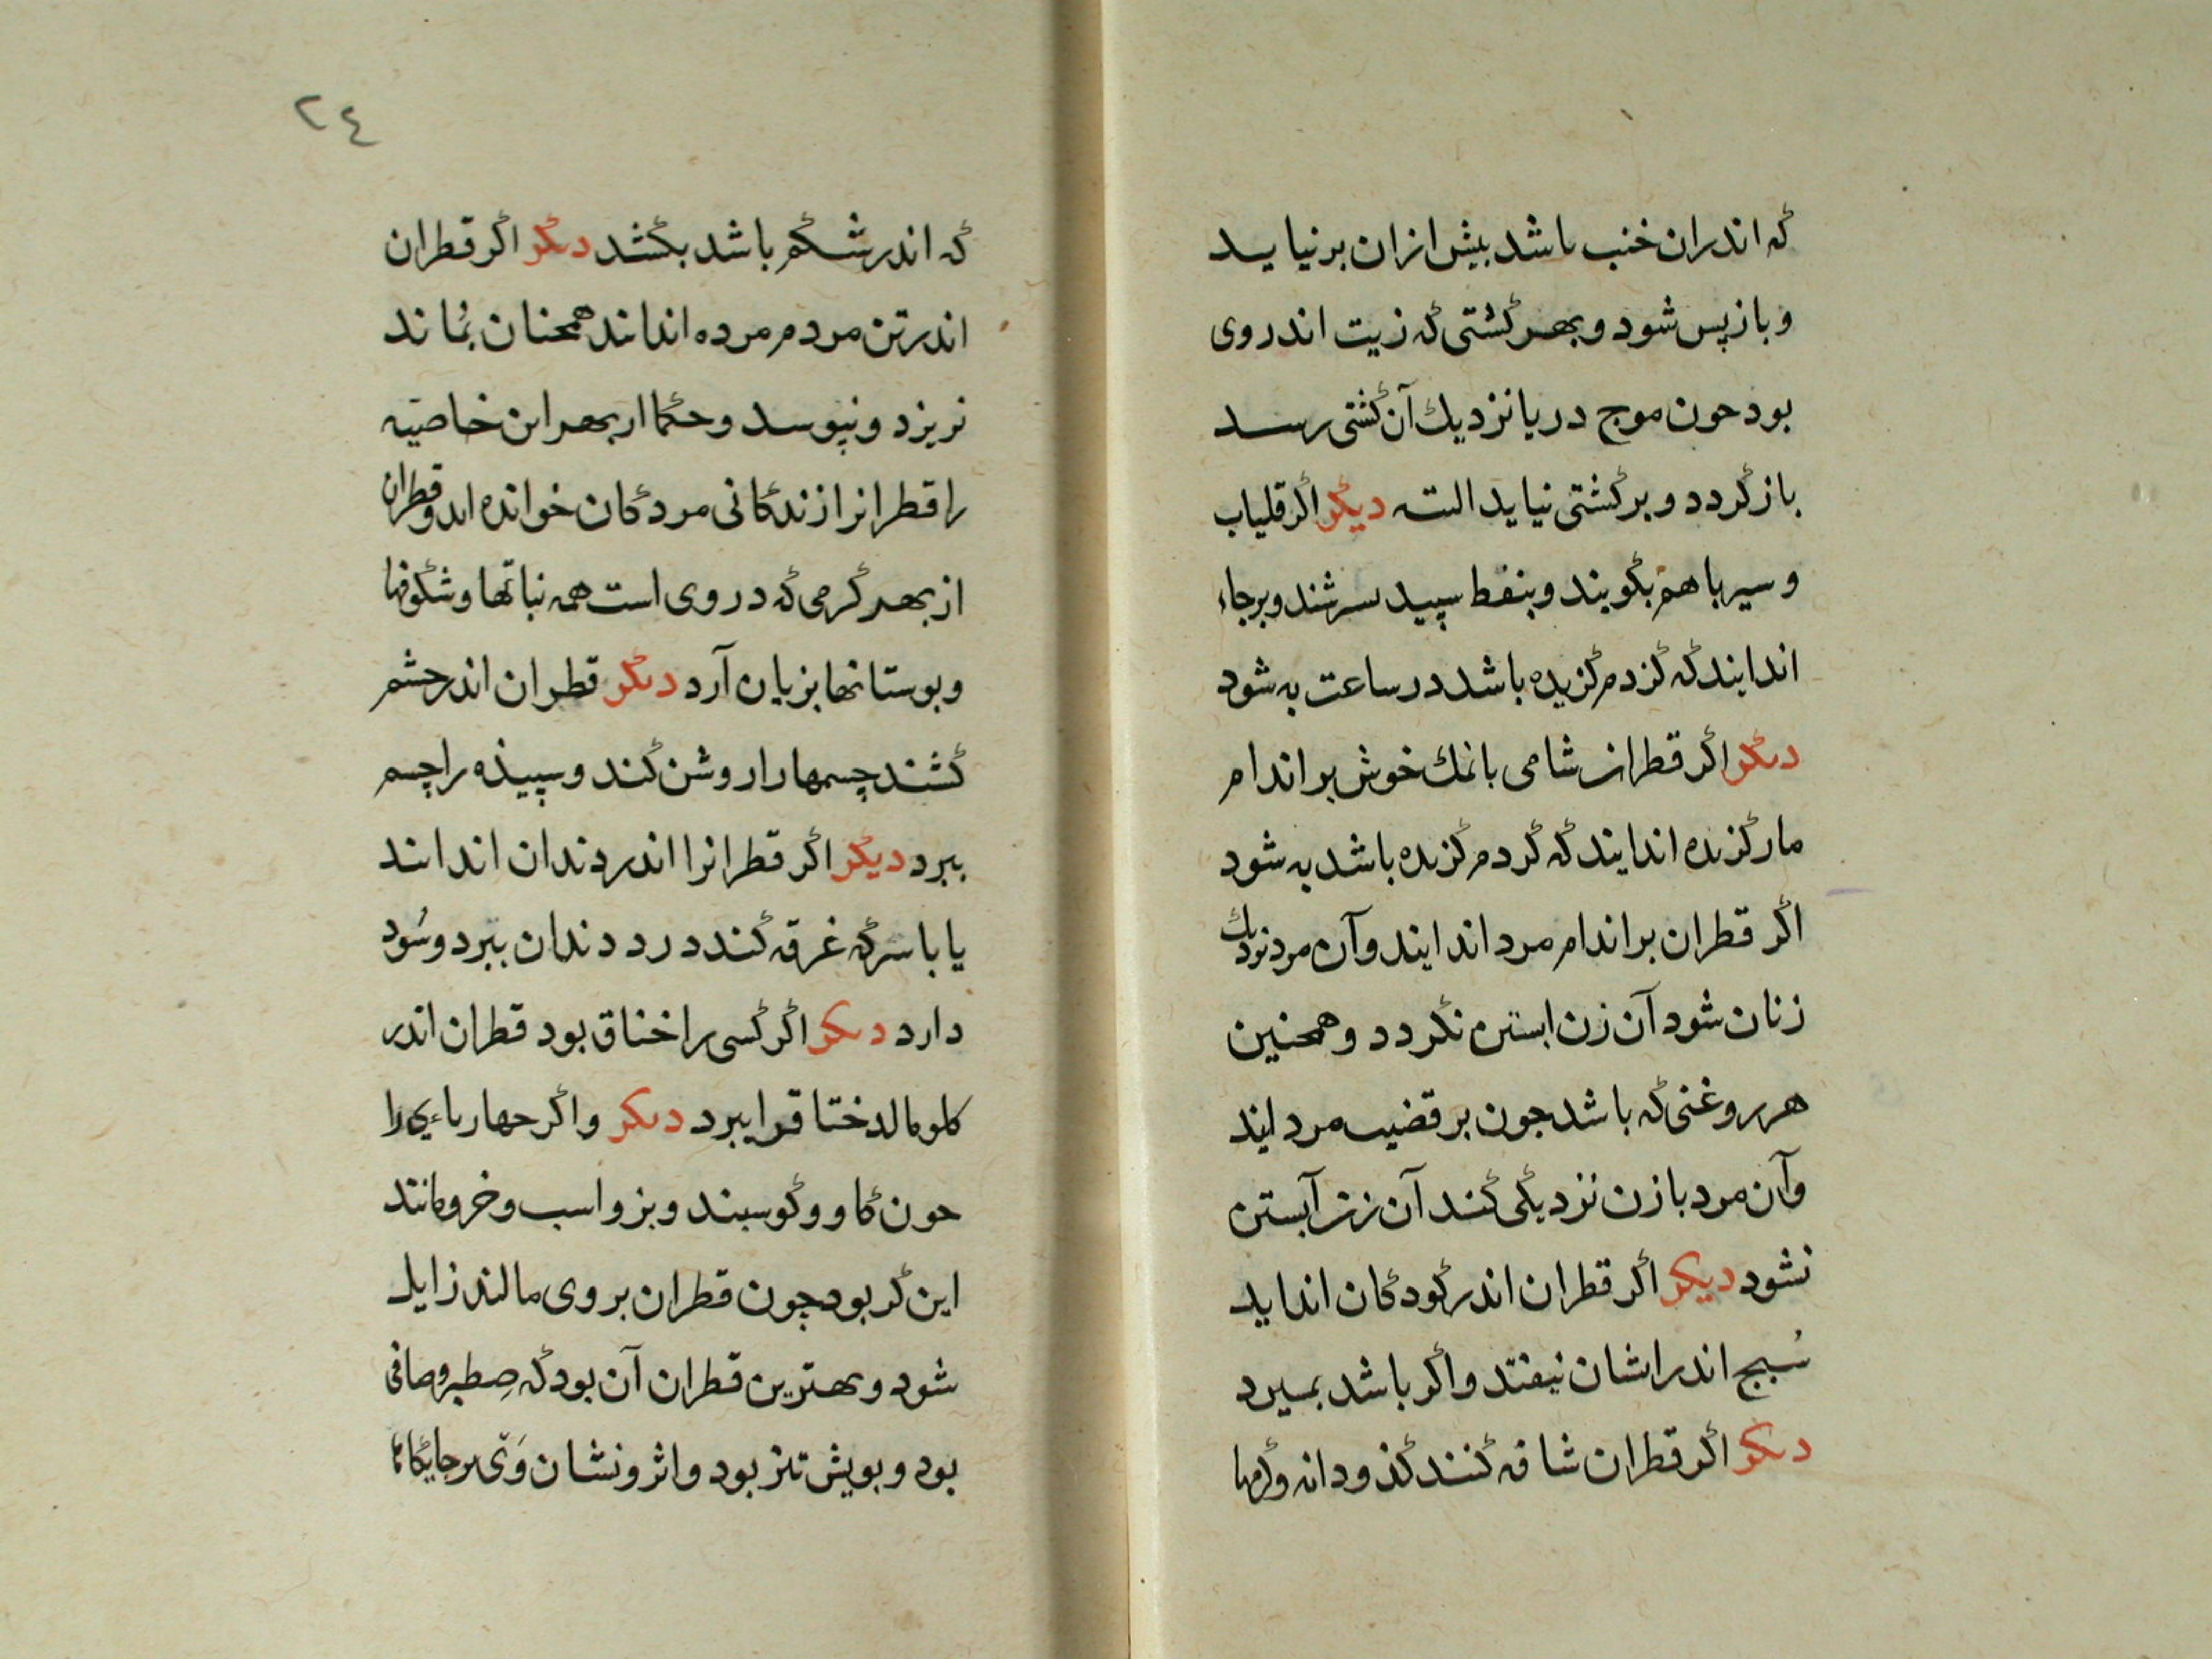 که اندران خنب باشد بیش ازان برنیاید
و باز پس شود و بهر کشتی که زیت اندر وی
بود حون موج دریا نزدیك آن کشتی رسد
باز کردد و بر کشتی نیاید البته دیکر اکر قلیاب
و سیر باهم بکوبند و بنفط سپید سرشند و برجاء
اندایند که کزدم کزیده باشد در ساعت به شود
دیکر اکر قطران شامی بانمك خوش بر اندام
مار کزیده اندایند که کزدم کزیده باشد به شود
اکر قطران بر اندام مرد اندایند و آن مرد نزدیك
زنان شود آن زن ابستن نکردد و همچنین
هر روغنی که باشد جون بر قضیب مرد
وآن مرد با زن نزدیکی کند آن زن آبستن
نشود دیکر اکر قطران اندر کودکان انداید
سُبج اندر ایشان نیفتد و اکر باشد بمیرد
دیکر اکر قطران شافه کنند کذودانه و کرمها
۲٤
که اندر شکم باشد بکشد دیکر اکر قطران
اندر تن مردم مرده اندایند همچنان بماند
نریزد و نپوسد و حکما از بهر این خاصیه
را قطرانرا زندکانی مردکان خوانده اند و قطران
از بهر کرمی که در وی است همه نباتها و شکوفها
و بوستانها بزیان آرد دیکر قطران اندر حشم
کشند چسمها را روشن کند و سپیذه را چسم
ببرد دیکر اکر قطرانرا اندر دندان اندایند
یا با سرکه غرقه کند درد دندان ببرد و سُود
دارد دیکر اکر کسی را خناق بود قطران اندر
کلو مالد ختاقرا ببرد دیکر و اکر حهارباءیی را
حون کاو و کوسبند و بز و اسب و خر و مانند
این کر بود چون قطران بر وی مالند زایل
شود و بهترین قطران آن بود که صطبر و صافی
بود و بویش تیز بود و اثر و نشان وَی بر جایکاه